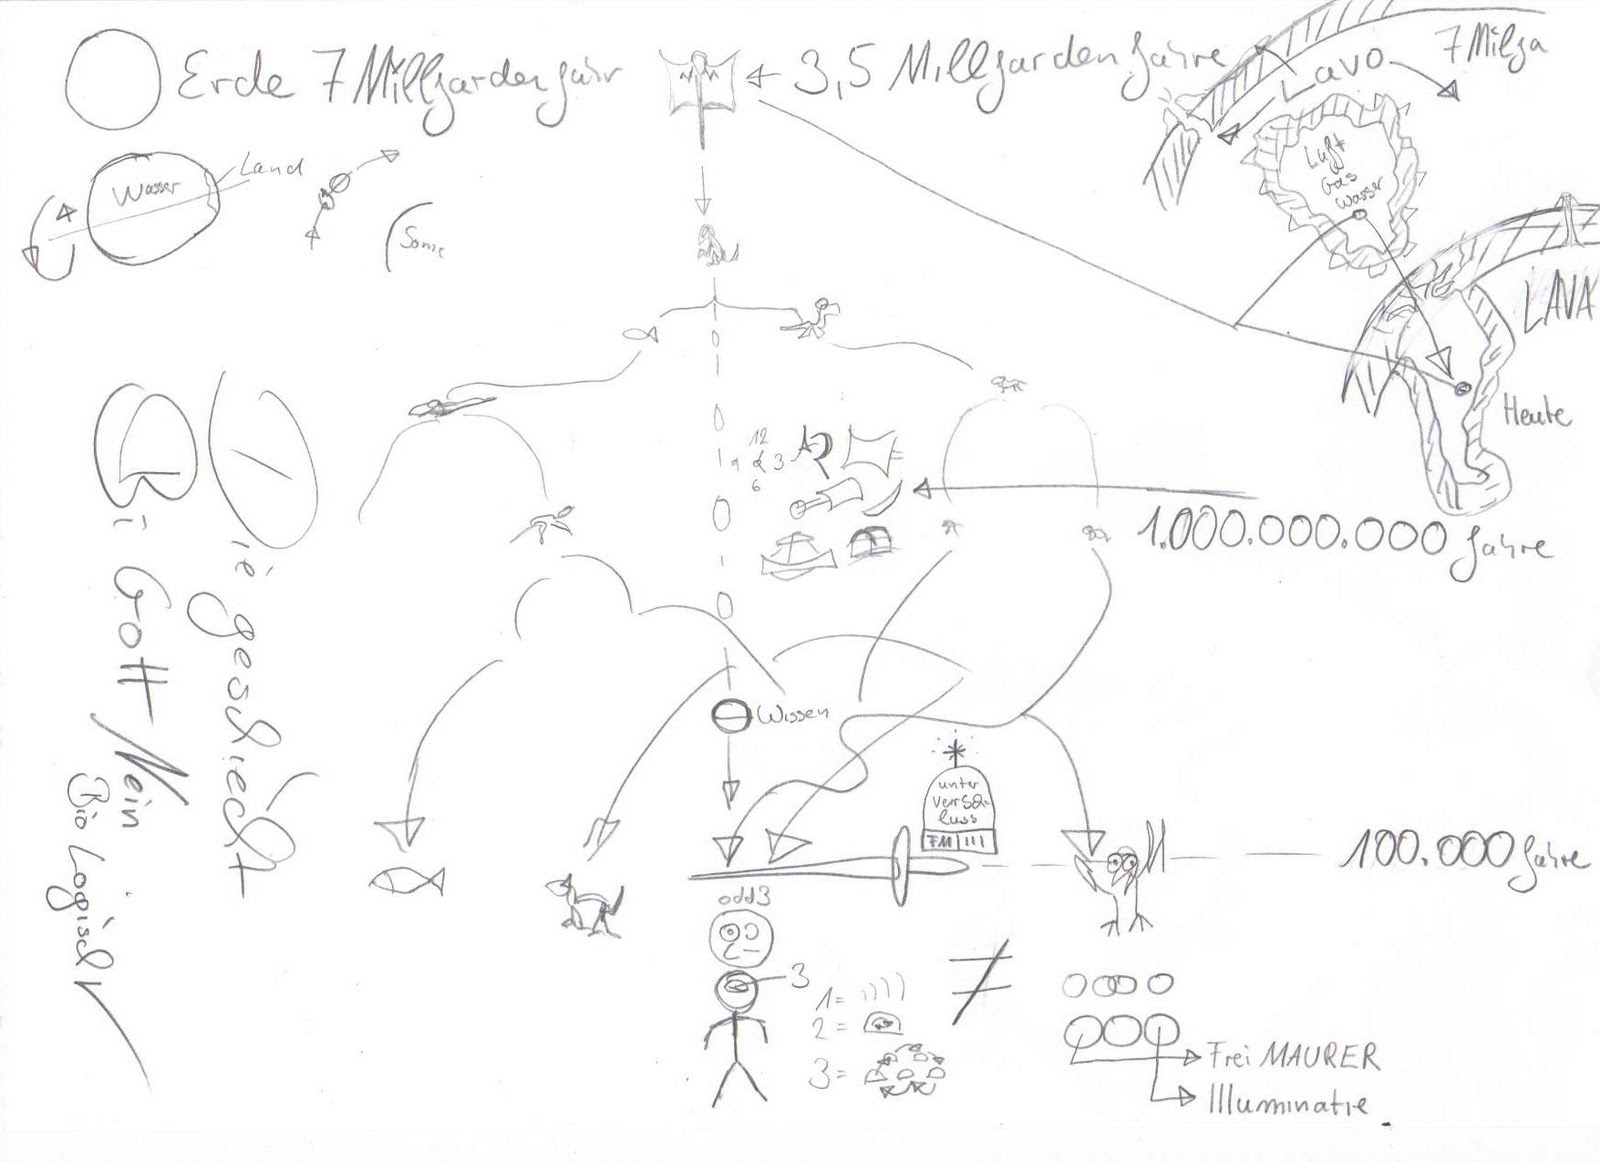 Erde 7 Milljarden Jahr
3,5 Milljarden Jahre
7 Milja
Lavo
Luft
Gas
Wasser
Wasser
Land
Sonne
LAVA
Heute
12
9 3
6
1.000.000.000 Jahre
Wissen
unter
FM III
100.000 Jahre
odd3
3
1=
2=
3=
≠
Frei MAURER
Illuminatie
Die geschiecht
Bi Gott Nein
Bio Logisch